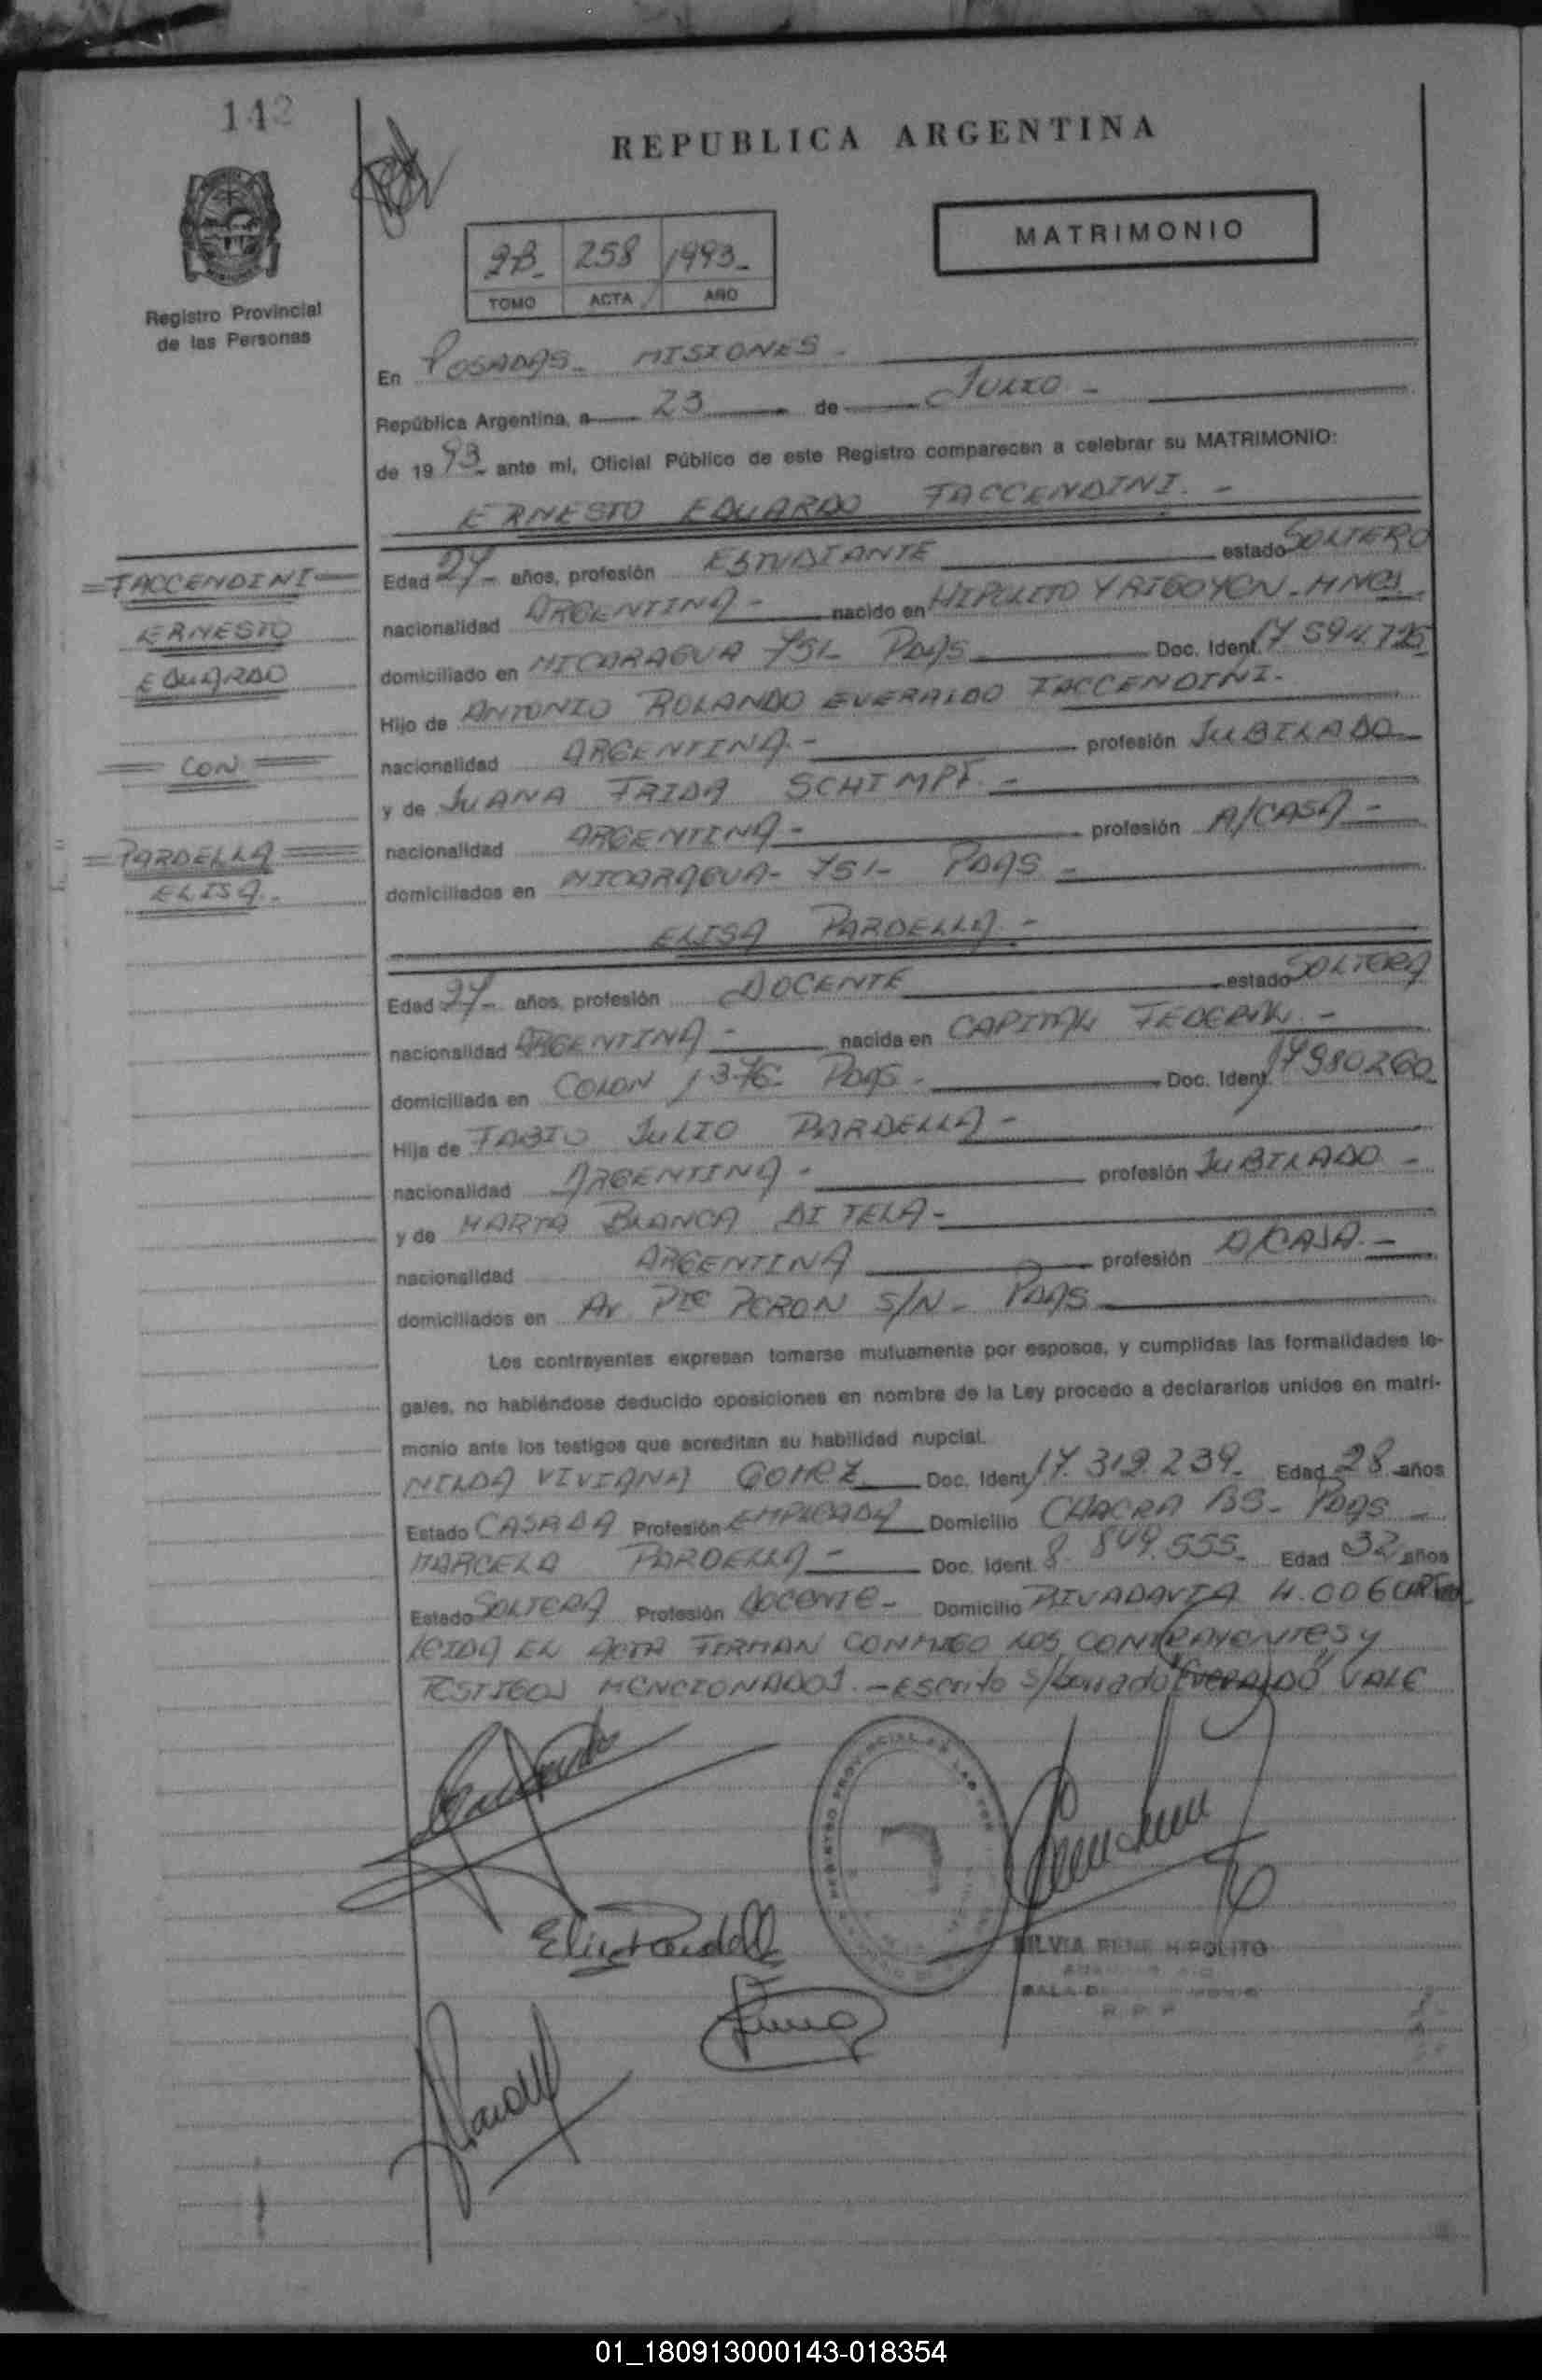 142
REPUBLICA ARGENTINA
MATRIMONIO
2B- 258 1993-
TOMO ACTA AÑO
Registro Provincial
de las Personas
En POSADAS - MISIONES -
República Argentina, a 23 de JULIO -
de 1993- ante mi, Oficial Público de este Registro comparecen a celebrar su MATRIMONIO:
ERNESTO EDUARDO TACCENDINI. -
=TACCENDINI=
ERNESTO
EDUARDO
= CON =
=PARDELLA=
ELISA.-
Edad 27- años, profesión ESTUDIANTE estado SOLTERO
nacionalidad ARGENTINA - nacido en HIPOLITO YRIGOYEN - MNES
domiciliado en NICARAGUA 751- PDAS Doc. Ident. 17.594.725
Hijo de ANTONIO ROLANDO EVERALDO TACCENDINI.-
nacionalidad ARGENTINA.- profesión JUBILADO
y de JUANA FRIDA SCHIMPF. -
nacionalidad ARGENTINA - profesión A/CASA -
domiciliados en NICARAGUA- 751- PDAS -
ELISA PARDELLA -
Edad 27- años, profesión DOCENTE estado SOLTERA
nacionalidad ARGENTINA - nacida en CAPITAL FEDERAL -
domiciliada en COLON 1376 PDAS - Doc. Ident. 17980260
Hija de FABIO JULIO PARDELLA -
nacionalidad ARGENTINA - profesión JUBILADO -
y de MARTA BLANCA DI TELA -
nacionalidad ARGENTINA profesión A/CASA. -
domiciliados en Av. Pte PERON S/N - PDAS
Los contrayentes expresan tomarse mutuamente por esposos, y cumplidas las formalidades le-
gales, no habiéndose deducido oposiciones en nombre de la Ley procedo a declararlos unidos en matri-
monio ante los testigos que acreditan su habilidad nupcial.
NILDA VIVIANA GOMEZ Doc. Ident. 17.312.239- Edad 28 años
Estado CASADA Profesión EMPLEADA Domicilio CHACRA - PDAS -
MARCELA PARDELLA - Doc. Ident. 8.849.555- Edad 32 años
Estado SOLTERA Profesión DOCENTE - Domicilio RIVADAVIA 4.006
LEIDA EL ACTA FIRMAN CONMIGO LOS CONTRAYENTES Y
TESTIGOS MENCIONADOS. - Escrito s/borrado "EVERALDO" VALE
REGISTRO PROVINCIAL DE LAS
Elisa Pardella
SILVIA RENE HIPOLITO
R. P. P.
01_180913000143-018354